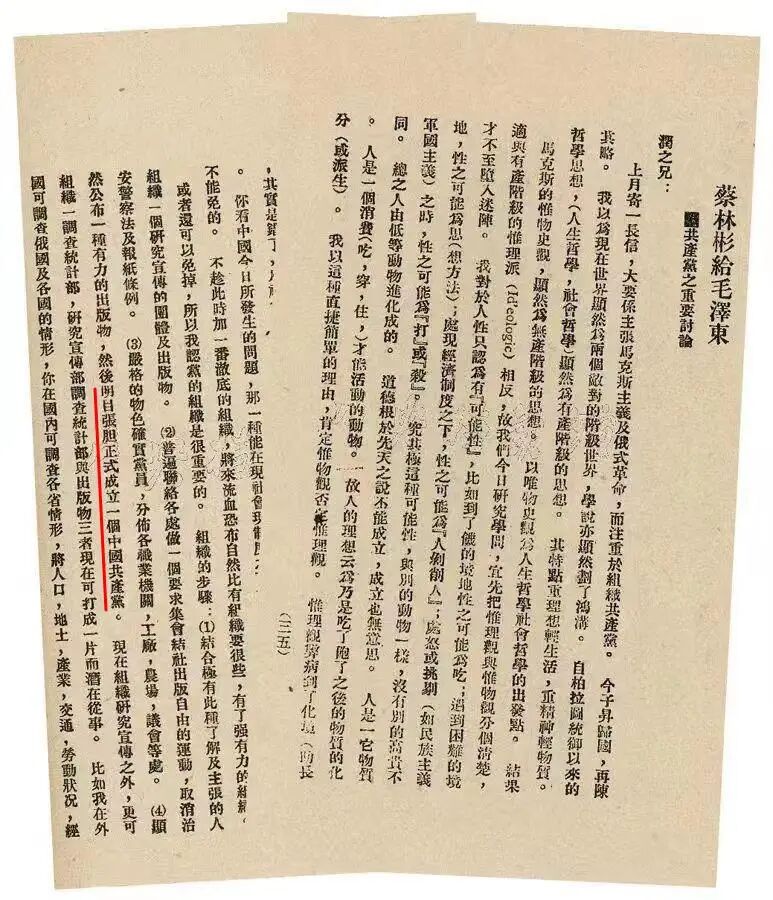 蔡林彬給毛澤東
共產黨之重要討論
潤之兄：
上月寄一長信，大要係主張馬克斯主義及俄式革命，而注重於組織共產黨。 今子昇歸國，再陳
其略。 我以爲現在世界顯然爲兩個敵對的階級世界，學說亦顯然劃了鴻溝。 自柏拉圖統御以來的
哲學思想，（人生哲學，社會哲學）顯然爲有產階級的思想。 其特點重理想輕生活，重精神輕物質。
馬克斯的惟物史觀，顯然爲無產階級的思想。 以唯物史觀爲人生哲學社會哲學的出發點。 結果
適與有產階級的惟理派（Ideologic）相反，故我們今日研究學問，宜先把惟理觀與惟物觀分個清楚，
才不至墮入迷陣。 我對於人性只認爲有『可能性』，比如到了餓的境地性之可能爲吃；遇到困難的境
地，性之可能爲思（想方法）；處現經濟制度之下，性之可能爲『人剝削人』；處怒或挑剔（如民族主義
軍國主義）之時，性之可能爲『打』或『殺』。 究其極這種可能性，與別的動物一樣，沒有別的高貴不
同。 總之人由低等動物進化成的。 道德根於先天之說不能成立，成立也無意思。 人是一它物質
。 人是一個消費（吃，穿，住，）才能活動的動物。 故人的理想云爲乃是吃了飽了之後的物質的化
分（或派生）。 我以這種直捷簡單的理由，肯定惟物觀否定惟理觀。 惟理觀弊病到了化境（助長
（三五）
，其實是錯了，
。 你看中國今日所發生的問題，那一種能在現社會現制度之
不能免的。 不趁此時加一番澈底的組織，將來流血恐布自然比有組織要很些，有了强有力的組織
或者還可以免掉，所以我認黨的組織是很重要的。 組織的步驟：(1)結合極有此種了解及主張的人
組織一個研究宣傳的團體及出版物。 (2)普遍聯絡各處做一個要求集會結社出版自由的運動，取消治
安警察法及報紙條例。 (3)嚴格的物色確實黨員，分佈各職業機關，工廠，農場，議會等處。 (4)顯
然公布一種有力的出版物，然後明目張胆正式成立一個中國共產黨。 現在組織研究宣傳之外，更可
組織一調查統計部，研究宣傳部調查統計部與出版物三者現在可打成一片而潛在從事。 比如我在外
國可調查俄國及各國的情形，你在國內可調查各省情形，將人口，地土，產業，交通，勞動狀况，經